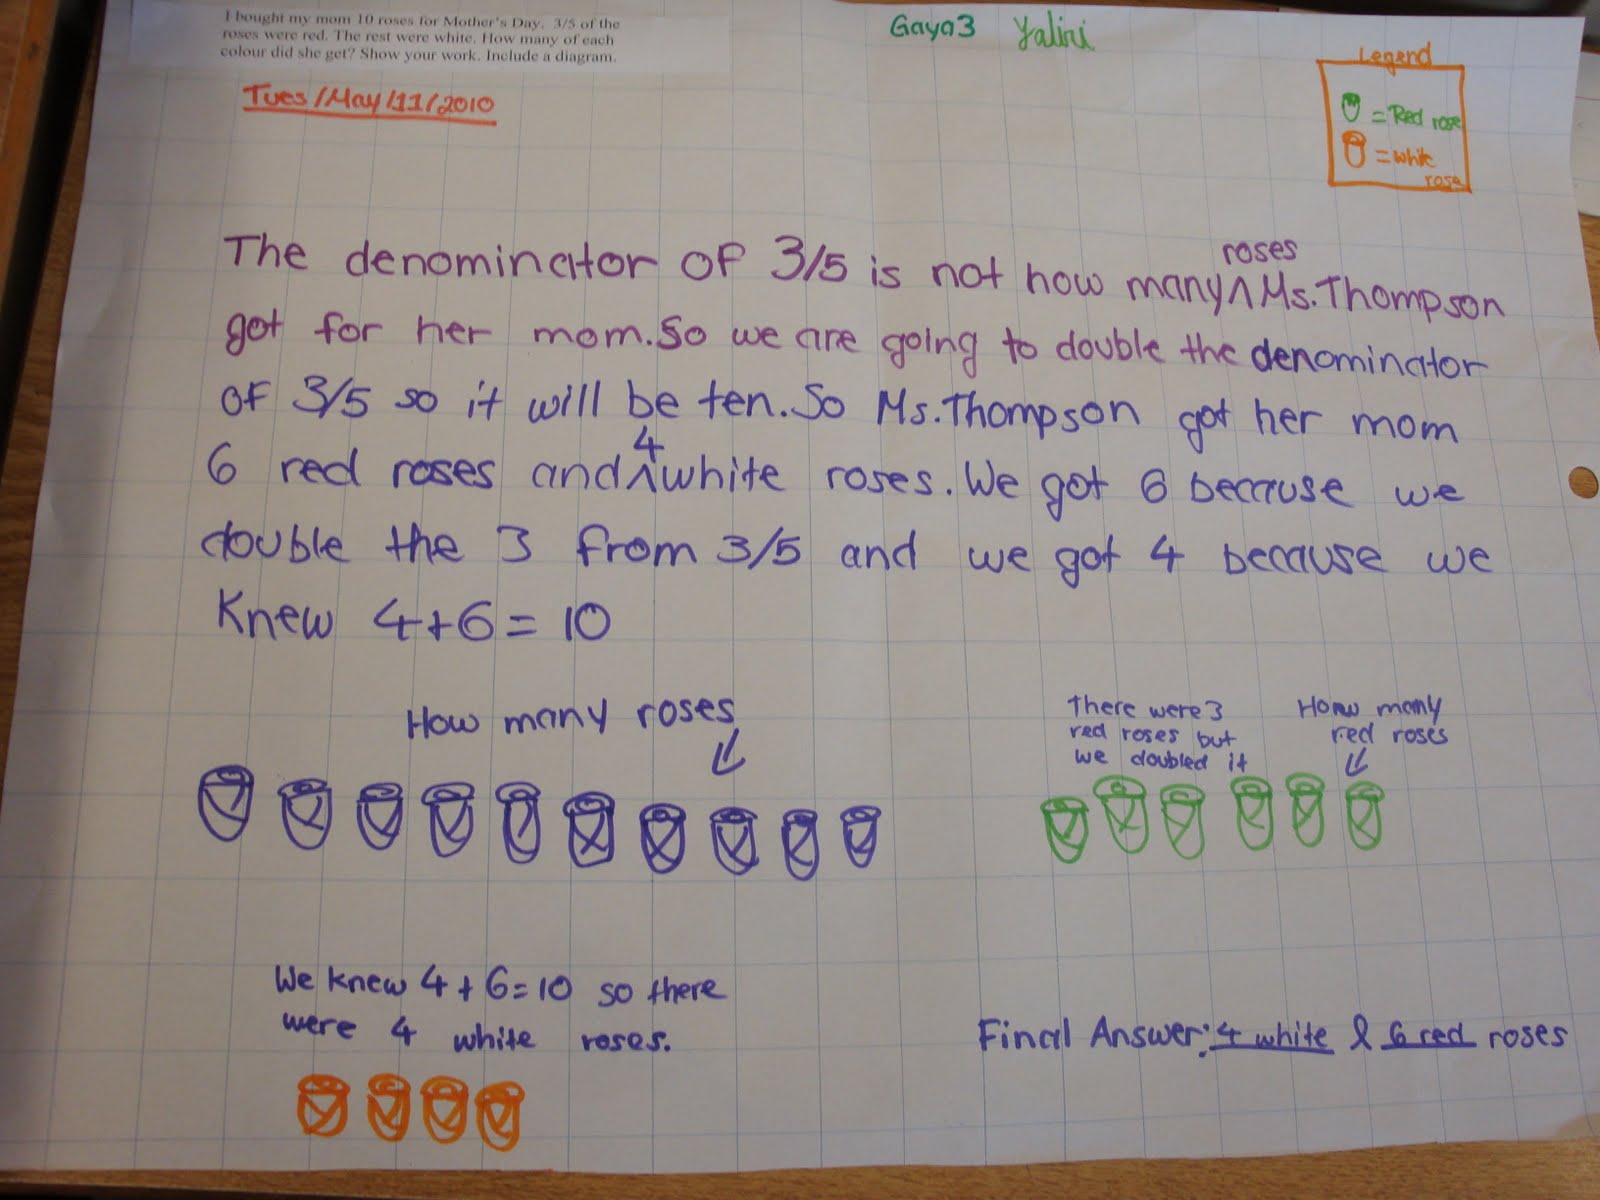 I bought my mom 10 roses for Mother's Day. 3/5 of the
roses were red. The rest were white. How many of each
colour did she get? Show your work. Include a diagram.
Gaya3 Yalini
Tues/May/11/2010
Legend
= Red rose
= white
rose
The denominator of 3/5 is not how many ^ roses Ms. Thompson
got for her mom. So we are going to double the denominator
of 3/5 so it will be ten. So Ms. Thompson got her mom
6 red roses and ^ 4 white roses. We got 6 because we
double the 3 from 3/5 and we got 4 because we
Knew 4+6=10
How many roses
There were 3
red roses but
we doubled it
How many
red roses
We knew 4+6=10 so there
were 4 white roses.
Final Answer: 4 white & 6 red roses